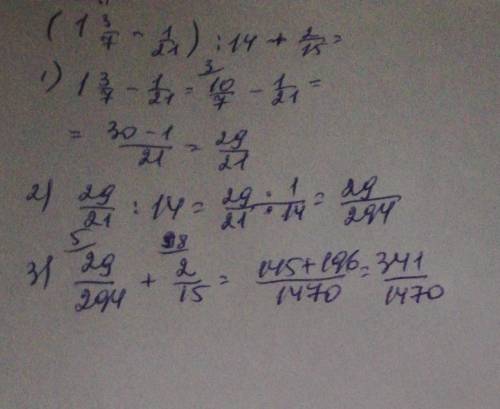 (1 3/7 - 1/21) : 14 + 2/15 =
1) 1 3/7 - 1/21 = 10/7 ³ - 1/21 =
= 30-1/21 = 29/21
2) 29/21 : 14 = 29·1/21·14 = 29/294
3) 29/294 ⁵ + 2/15 ⁹⁸ = 145+196/1470 = 341/1470